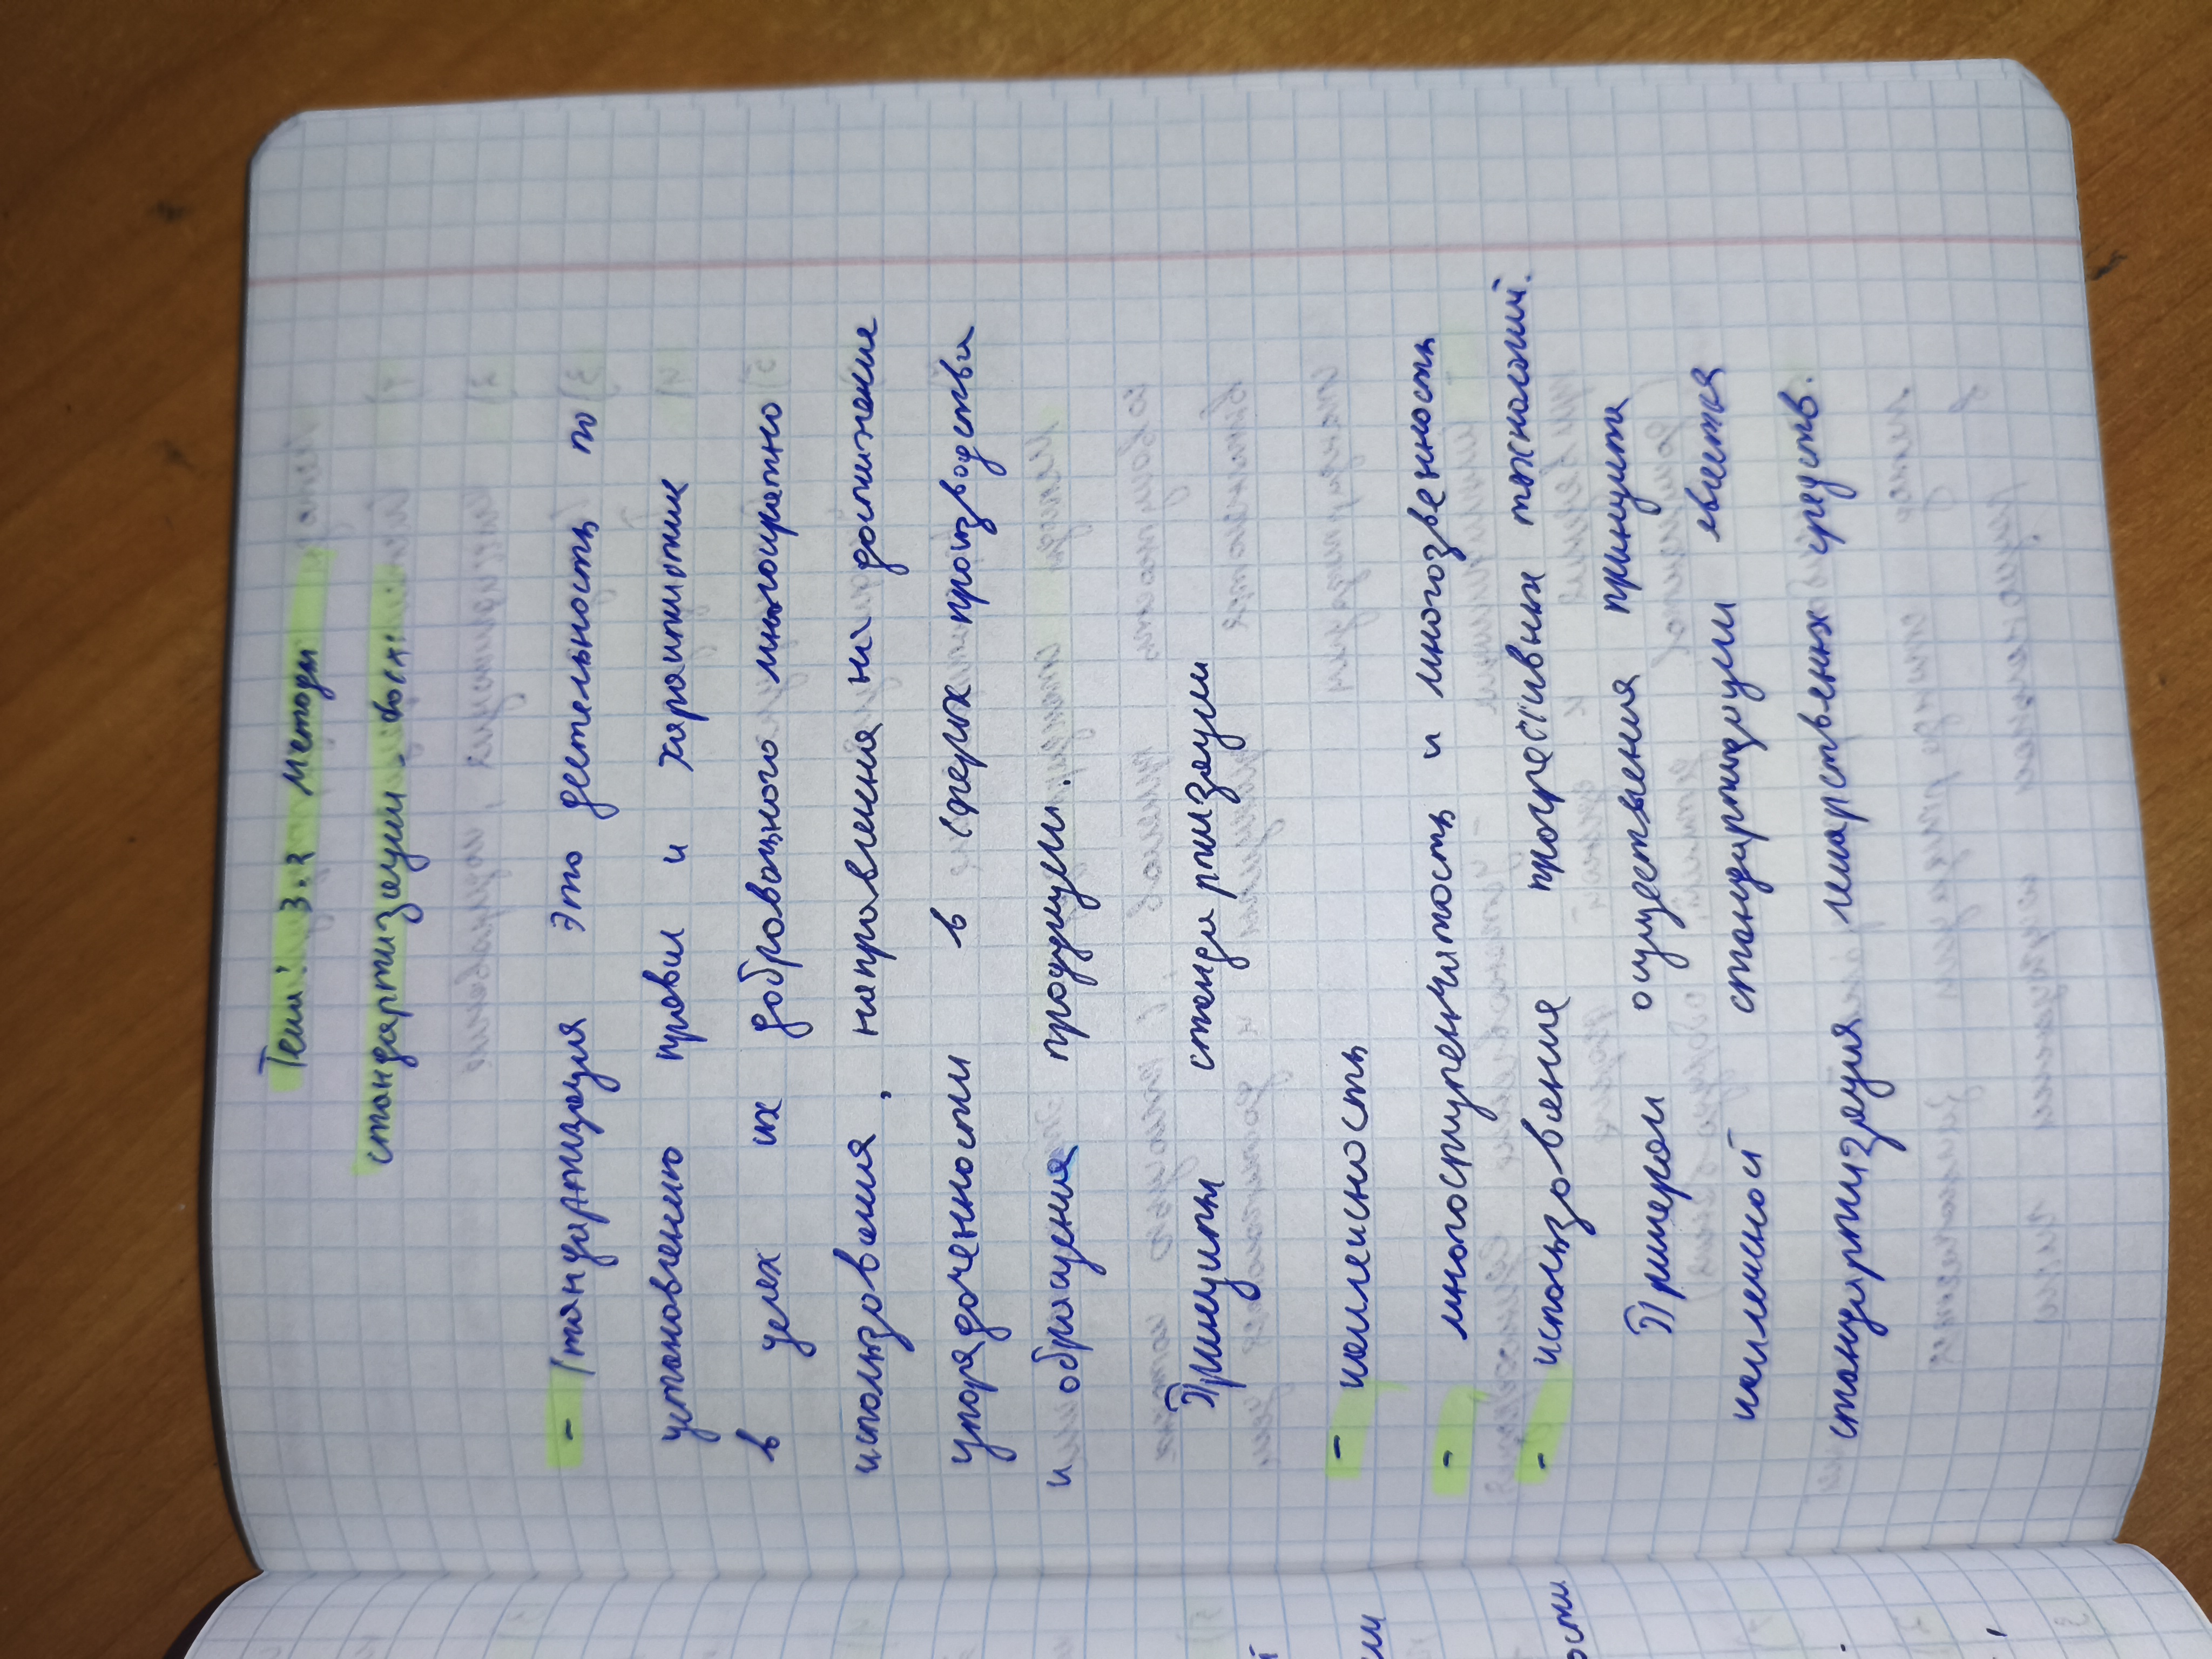 Тема 3.2 методы
стандартизации
- Стандартизация это деятельность по
установлению правил и характеристик
в целях их добровольного многократного
использования, направленная на достижение
упорядоченности в сферах производства
и обращения продукции.
Принципы стандартизации
- комплексность
- многоступенчатость и многозвенность
- использование прогрессивных технологий.
Примером осуществления принципа
комплексной стандартизации является
стандартизация лекарственных средств.